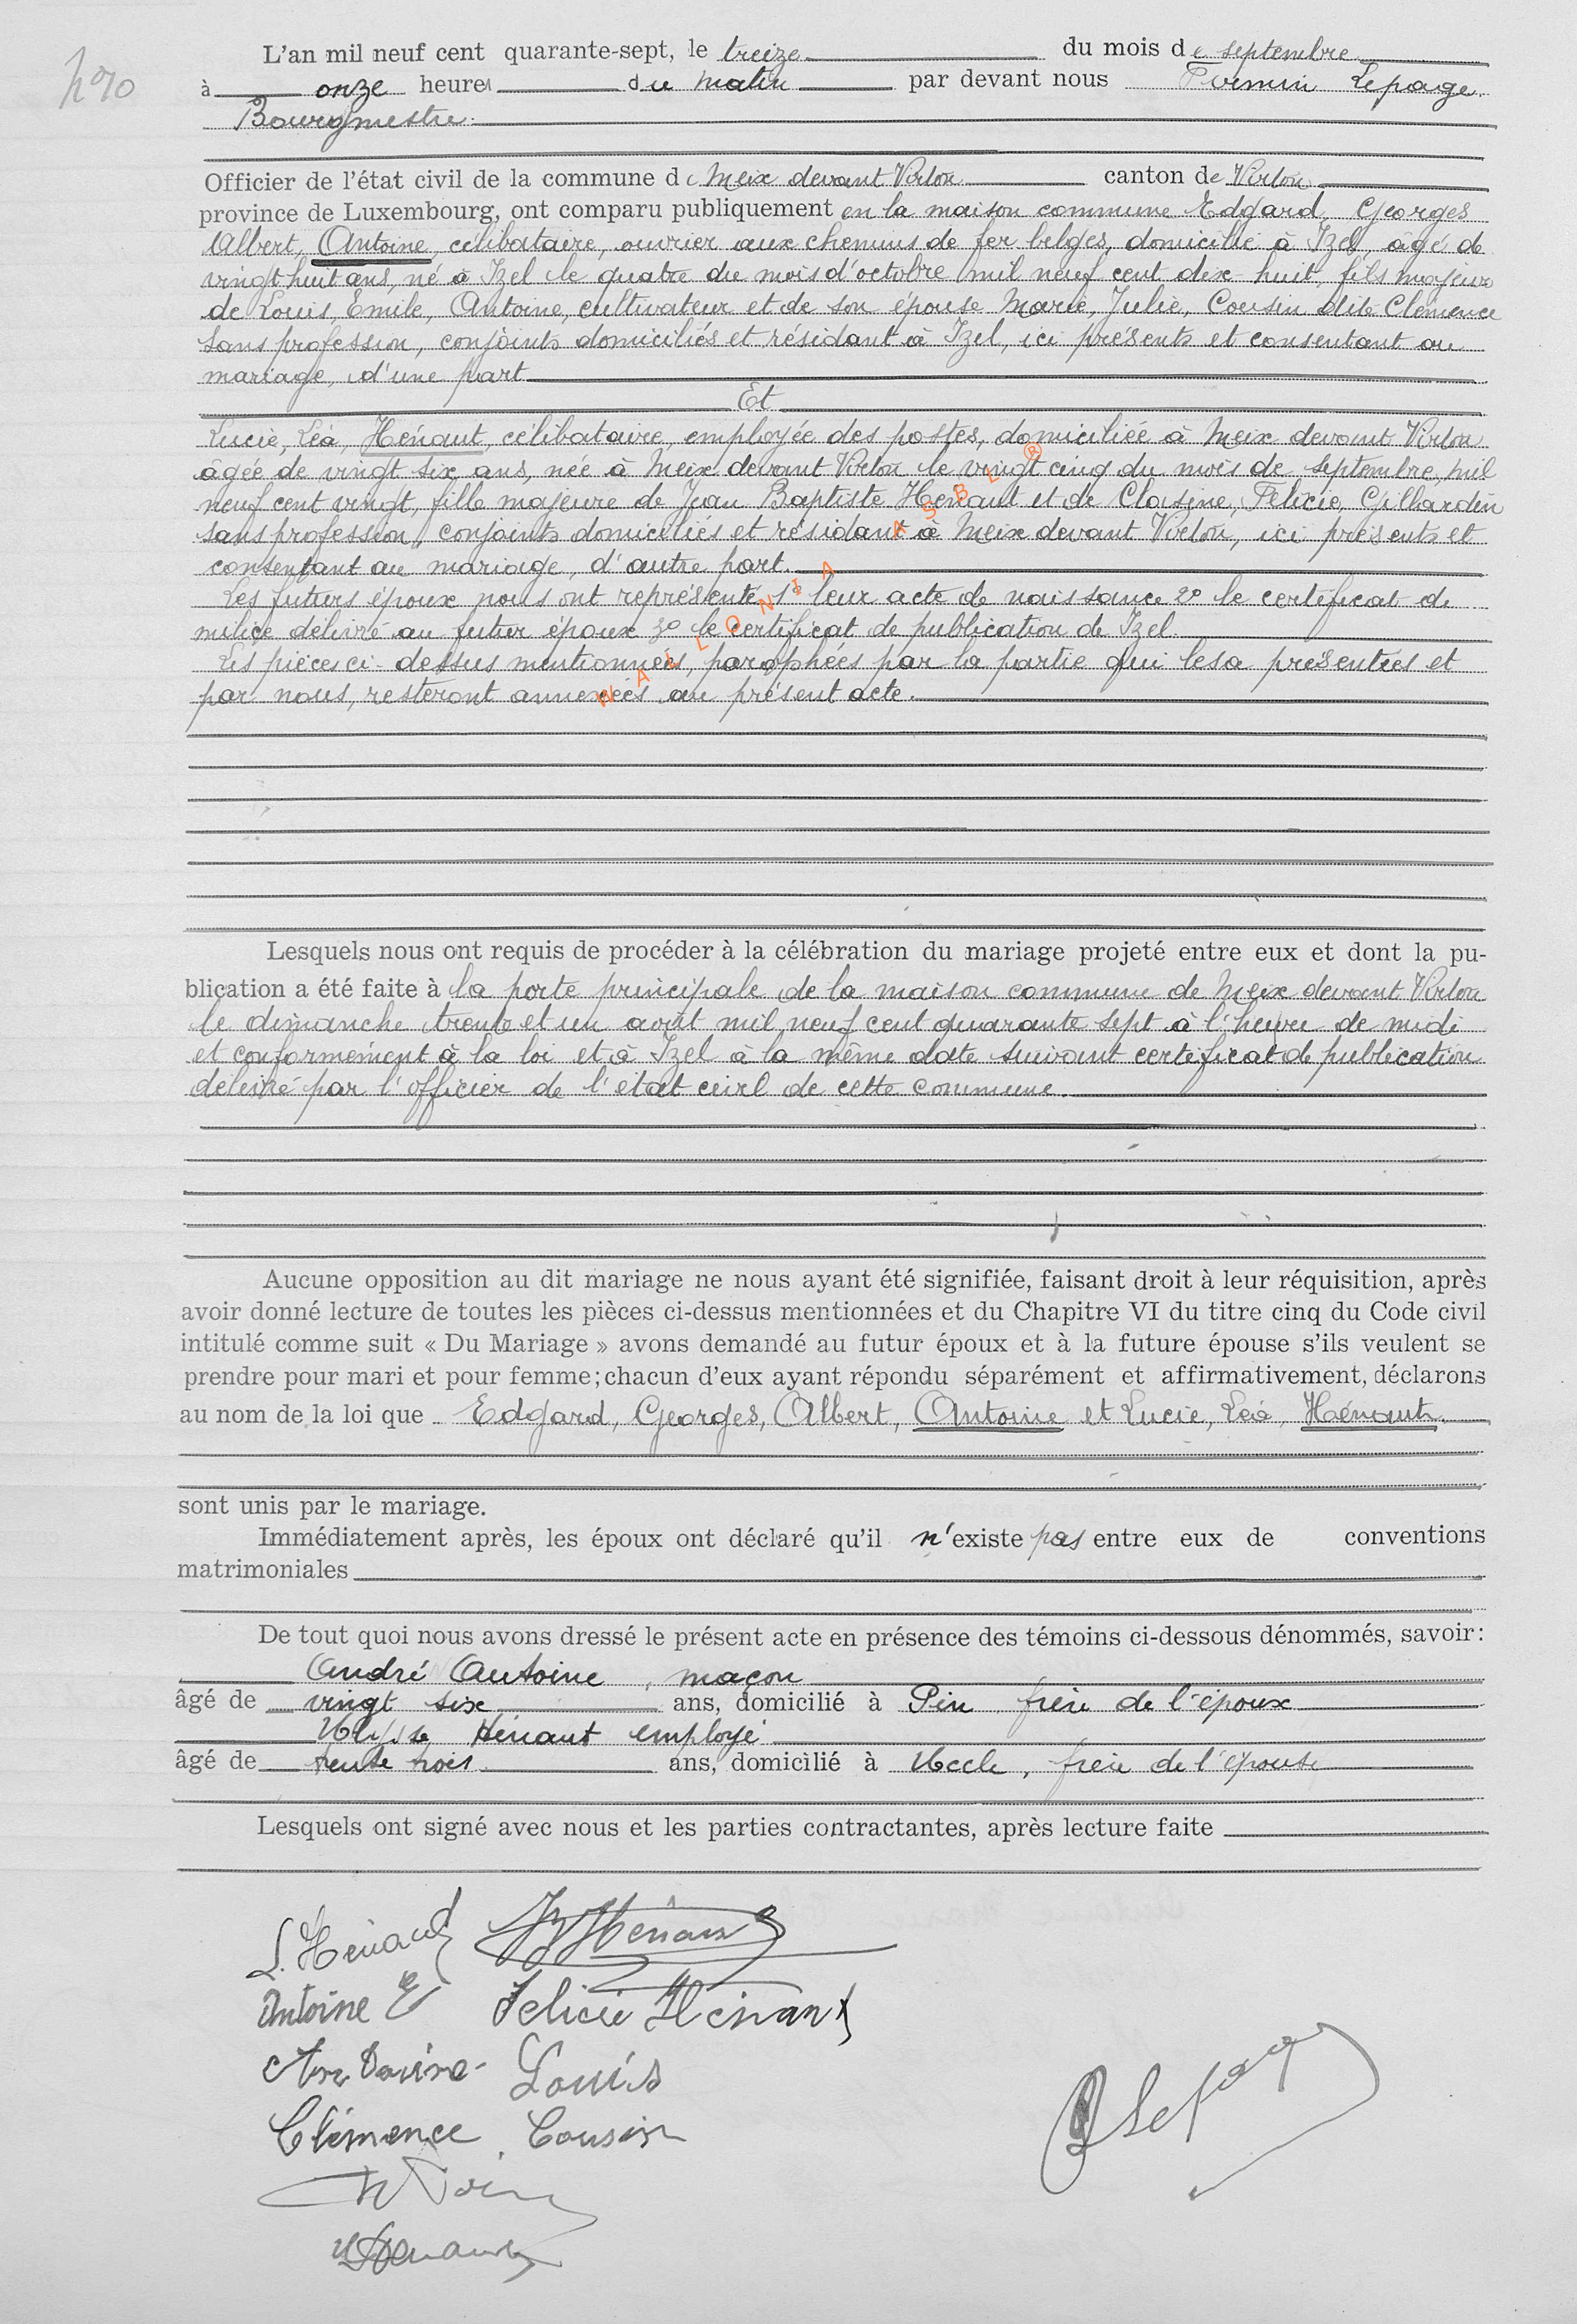 n°10
L'an mil neuf cent quarante-sept, le treize du mois de septembre
à onze heures du matin par devant nous Firmin Lepage
Bourgmestre.
Officier de l'état civil de la commune de Meix devant Virton canton de Virton
province de Luxembourg, ont comparu publiquement en la maison commune Edgard, Georges
Albert, Antoine, célibataire, ouvrier aux chemins de fer belges, domicilié à Izel, âgé de
vingt huit ans, né à Izel le quatre du mois d'octobre mil neuf cent dix-huit, fils majeur
de Louis, Emile, Antoine, cultivateur et de son épouse Marie, Julie, Cousin dite Clémence
sans profession, conjoints domiciliés et résidant à Izel, ici présents et consentant au
mariage, d'une part
Et
Lucie, Léa, Hénaut, célibataire, employée des postes, domiciliée à Meix devant Virton
âgée de vingt six ans, née à Meix devant Virton le vingt cinq du mois de septembre, mil
neuf cent vingt, fille majeure de Jean Baptiste Henaut et de Clasine, Felicie, Gillardin
sans profession, conjoints domiciliés et résidant à Meix devant Virton, ici présents et
consentant au mariage, d'autre part.
Les futurs époux nous ont représenté 1° leur acte de naissance 2° le certificat de
milice délivré au futur époux 3° le certificat de publication de Izel.
Les pièces ci-dessus mentionnées, paraphées par la partie qui les a présentées et
par nous, resteront annexées au présent acte.
WALLONIA ASBL ®
Lesquels nous ont requis de procéder à la célébration du mariage projeté entre eux et dont la pu-
blication a été faite à la porte principale de la maison commune de Meix devant Virton
le dimanche trente et un août mil neuf cent quarante sept à l'heure de midi
et conformément à la loi et à Izel à la même date suivant certificat de publication
délivré par l'officier de l'état civil de cette commune.
Aucune opposition au dit mariage ne nous ayant été signifiée, faisant droit à leur réquisition, après
avoir donné lecture de toutes les pièces ci-dessus mentionnées et du Chapitre VI du titre cinq du Code civil
intitulé comme suit « Du Mariage » avons demandé au futur époux et à la future épouse s'ils veulent se
prendre pour mari et pour femme; chacun d'eux ayant répondu séparément et affirmativement, déclarons
au nom de la loi que Edgard, Georges, Albert, Antoine et Lucie, Léa, Hénaut.
sont unis par le mariage.
Immédiatement après, les époux ont déclaré qu'il n'existe pas entre eux de conventions
matrimoniales
De tout quoi nous avons dressé le présent acte en présence des témoins ci-dessous dénommés, savoir:
André Antoine, maçon
âgé de vingt six ans, domicilié à Pin frère de l'époux
Ulysse Hénaut employé
âgé de trente trois ans, domicilié à Uccle, frère de l'épouse
Lesquels ont signé avec nous et les parties contractantes, après lecture faite
L. Hénaut JB Hénaut
Antoine E Felicie Hénaut
Antoine Louis
Clémence Cousin
Lepage
U Henaut